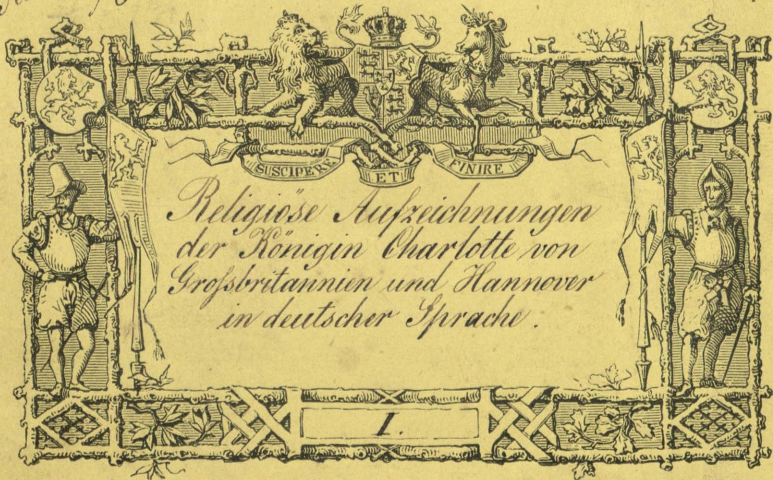 SUSCIPERE ET FINIRE
Religiöse Aufzeichnungen
der Königin Charlotte von
Grossbritannien und Hannover
in deutscher Sprache.
I.